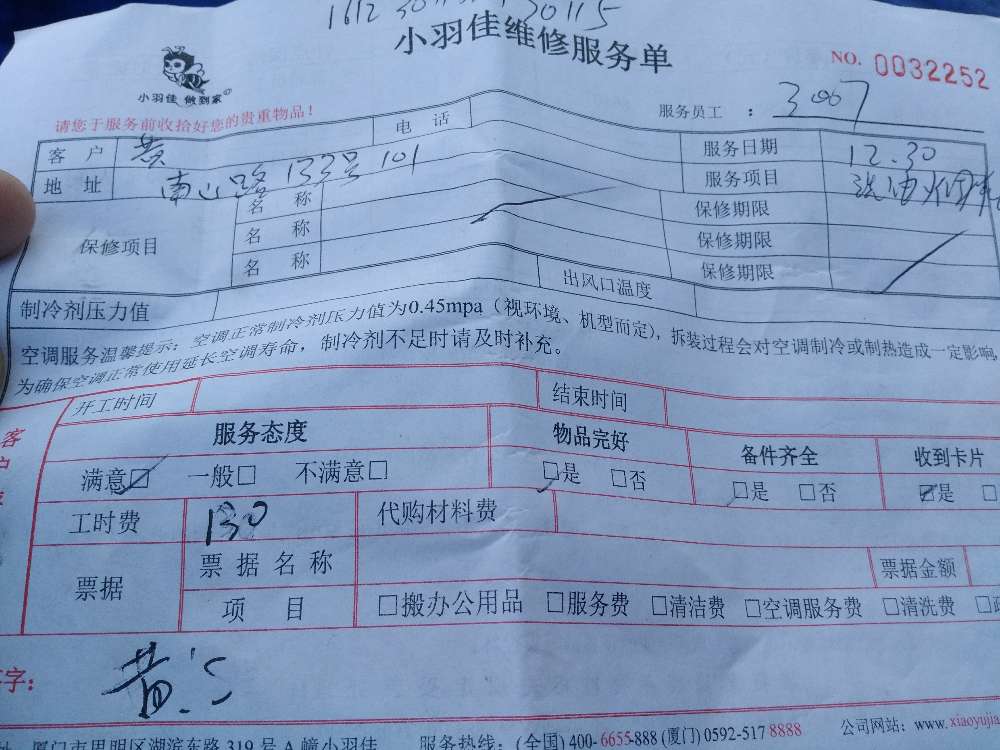 小羽佳维修服务单
NO. 0032252
小羽佳 做到家
请您于服务前收拾好您的贵重物品!
服务员工 : 3007
客户 黄 电话 服务日期 12.30
地址 南山路133号101 服务项目
保修项目 名称 保修期限
名称 保修期限
名称 保修期限
制冷剂压力值 出风口温度
空调服务温馨提示:空调正常制冷剂压力值为0.45mpa(视环境、机型而定),拆装过程会对空调制冷或制热造成一定影响,
为确保空调正常使用延长空调寿命,制冷剂不足时请及时补充。
开工时间 结束时间
服务态度 物品完好 备件齐全 收到卡片
满意☑ 一般□ 不满意□ □是 □否 □是 □否 ☑是
工时费 130 代购材料费
票据 票据名称 票据金额
项目 □搬办公用品 □服务费 □清洁费 □空调服务费 □清洗费
字: 黄
厦门市思明区湖滨东路319号A幢小羽佳 服务热线:(全国)400-6655-888 (厦门)0592-517 8888 公司网站:www.xiaoyujia